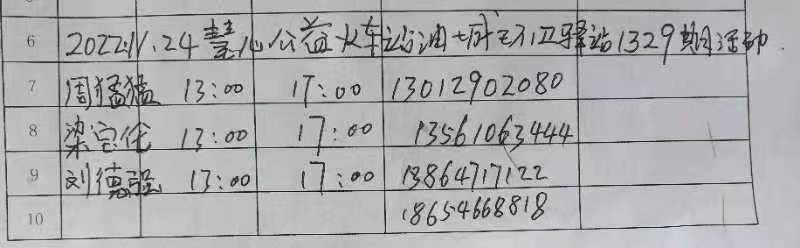 6 2022.11.24 公益火车站油城环卫驿站1329期活动
7 周猛猛 13:00 17:00 13012902080
8 梁宝佳 13:00 17:00 13561063444
9 刘德强 13:00 17:00 13864717122
10 18654668818